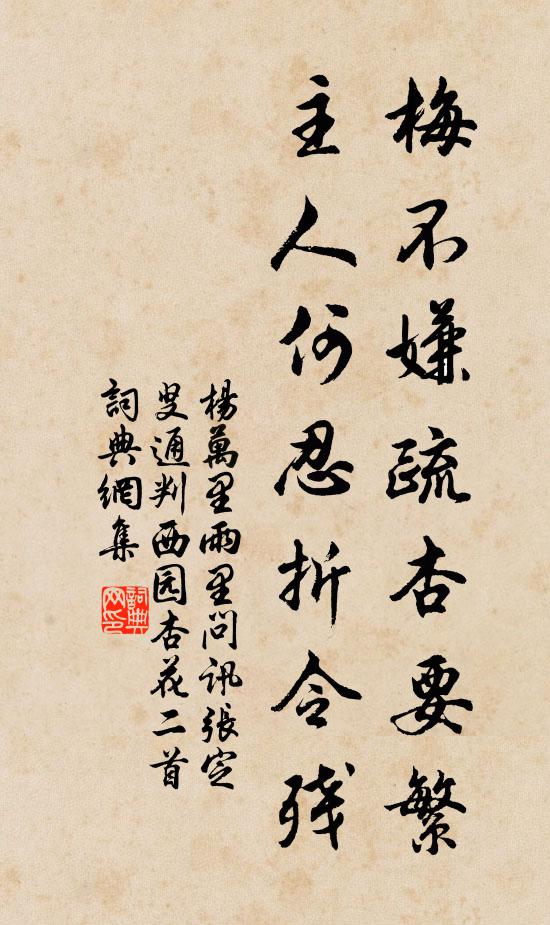 梅不嫌疏杏要繁
主人何忍折令残
楊萬里雨里问讯張定
叟通判西园杏花二首
詞典網集
詞典
网印